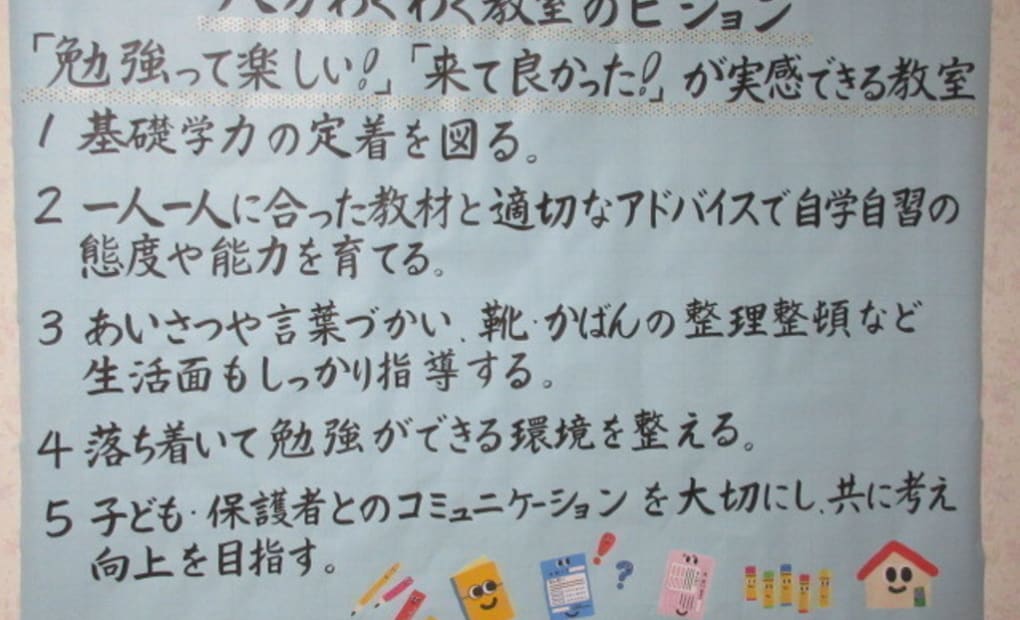 わくわく教室のビジョン
「勉強って楽しい!」「来て良かった!」が実感できる教室
1 基礎学力の定着を図る。
2 一人一人に合った教材と適切なアドバイスで自学自習の
態度や能力を育てる。
3 あいさつや言葉づかい、靴・かばんの整理整頓など
生活面もしっかり指導する。
4 落ち着いて勉強ができる環境を整える。
5 子ども・保護者とのコミュニケーションを大切にし、共に考え
向上を目指す。
! ?